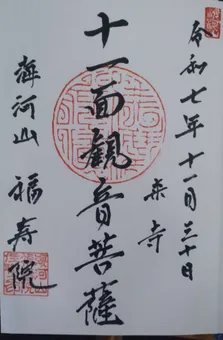 令和七年十一月三十日
来寺
十一面観音菩薩
海河山 福寿院